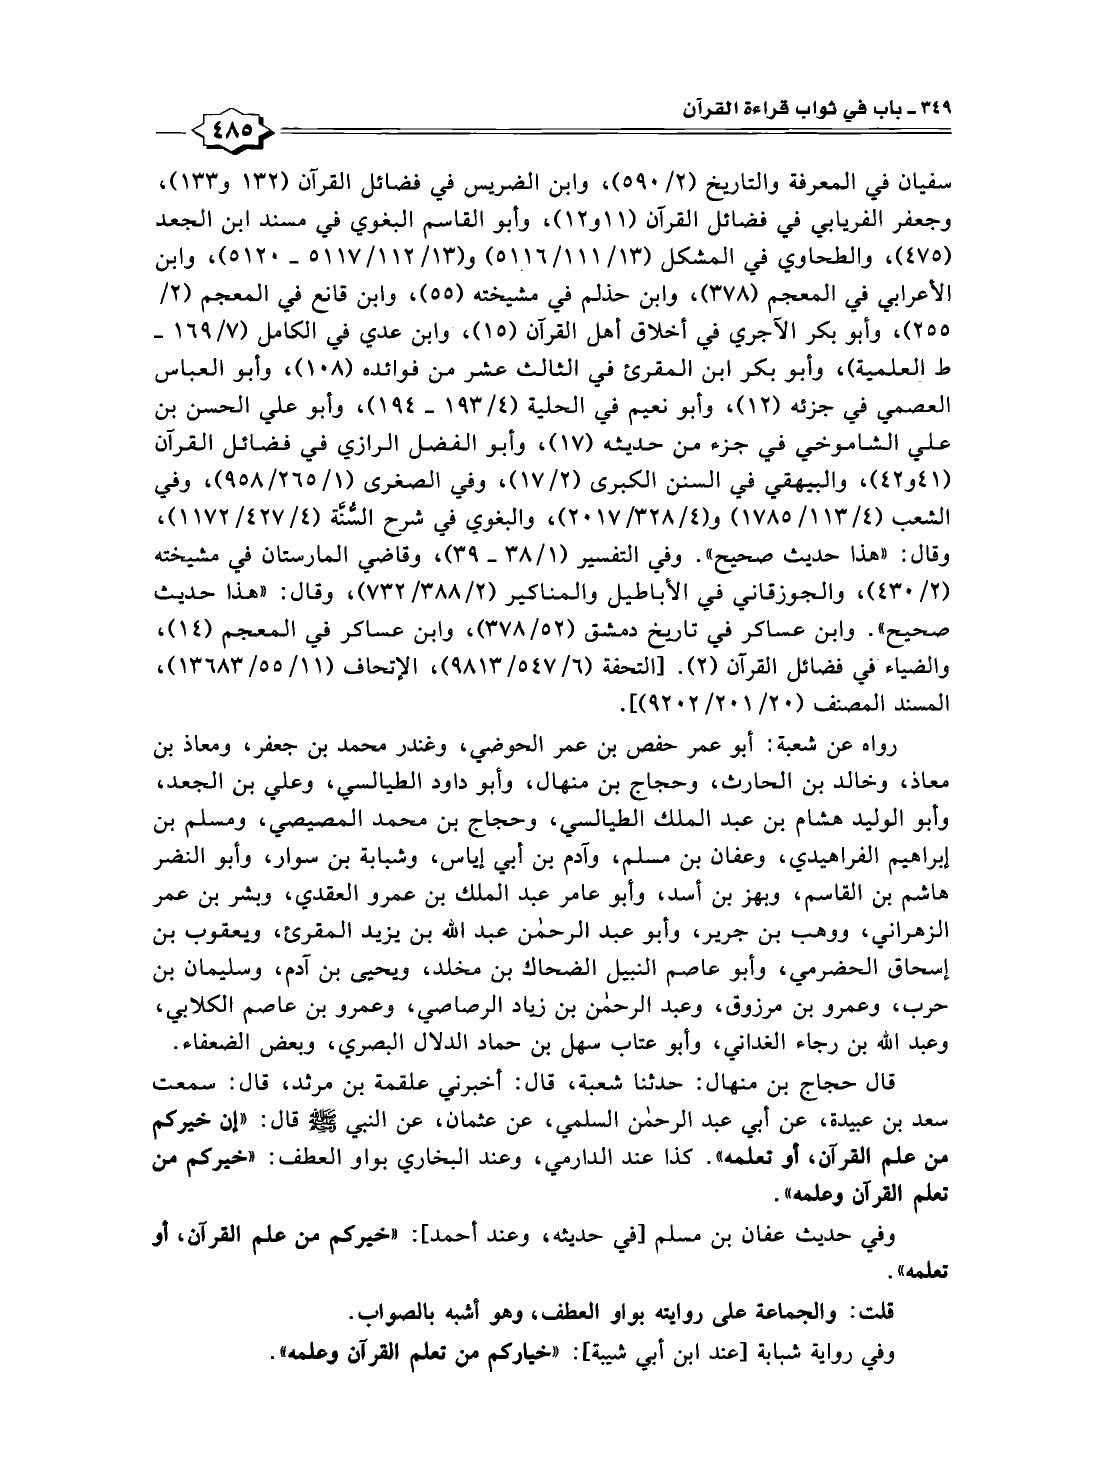 ٣٤٩ ـ باب في ثواب قراءة القرآن
٤٨٥
سفيان في المعرفة والتاريخ (٢/ ٥٩٠)، وابن الضريس في فضائل القرآن (١٣٢ و١٣٣)،
وجعفر الفريابي في فضائل القرآن (١١و١٢)، وأبو القاسم البغوي في مسند ابن الجعد
(٤٧٥)، والطحاوي في المشكل (١٣/ ١١١/ ٥١١٦) و(١٣/ ١١٢/ ٥١١٧ ـ ٥١٢٠)، وابن
الأعرابي في المعجم (٣٧٨)، وابن حذلم في مشيخته (٥٥)، وابن قانع في المعجم (٢/
٢٥٥)، وأبو بكر الآجري في أخلاق أهل القرآن (١٥)، وابن عدي في الكامل (٧/ ١٦٩ ـ
ط العلمية)، وأبو بكر ابن المقرئ في الثالث عشر من فوائده (١٠٨)، وأبو العباس
العصمي في جزئه (١٢)، وأبو نعيم في الحلية (٤/ ١٩٣ ـ ١٩٤)، وأبو علي الحسن بن
علي الشاموخي في جزء من حديثه (١٧)، وأبو الفضل الرازي في فضائل القرآن
(٤١و٤٢)، والبيهقي في السنن الكبرى (٢/ ١٧)، وفي الصغرى (١/ ٢٦٥/ ٩٥٨)، وفي
الشعب (٤/ ١١٣/ ١٧٨٥) و(٤/ ٣٢٨/ ٢٠١٧)، والبغوي في شرح السُّنَّة (٤/ ٤٢٧/ ١١٧٢)،
وقال: «هذا حديث صحيح». وفي التفسير (١/ ٣٨ ـ ٣٩)، وقاضي المارستان في مشيخته
(٢/ ٤٣٠)، والجوزقاني في الأباطيل والمناكير (٢/ ٣٨٨/ ٧٣٢)، وقال: «هذا حديث
صحيح». وابن عساكر في تاريخ دمشق (٥٢/ ٣٧٨)، وابن عساكر في المعجم (١٤)،
والضياء في فضائل القرآن (٢). [التحفة (٦/ ٥٤٧/ ٩٨١٣)، الإتحاف (١١/ ٥٥/ ١٣٦٨٣)،
المسند المصنف (٢٠/ ٢٠١/ ٩٢٠٢)].
رواه عن شعبة: أبو عمر حفص بن عمر الحوضي، وغندر محمد بن جعفر، ومعاذ بن
معاذ، وخالد بن الحارث، وحجاج بن منهال، وأبو داود الطيالسي، وعلي بن الجعد،
وأبو الوليد هشام بن عبد الملك الطيالسي، وحجاج بن محمد المصيصي، ومسلم بن
إبراهيم الفراهيدي، وعفان بن مسلم، وآدم بن أبي إياس، وشبابة بن سوار، وأبو النضر
هاشم بن القاسم، وبهز بن أسد، وأبو عامر عبد الملك بن عمرو العقدي، وبشر بن عمر
الزهراني، ووهب بن جرير، وأبو عبد الرحمٰن عبد الله بن يزيد المقرئ، ويعقوب بن
إسحاق الحضرمي، وأبو عاصم النبيل الضحاك بن مخلد، ويحيى بن آدم، وسليمان بن
حرب، وعمرو بن مرزوق، وعبد الرحمٰن بن زياد الرصاصي، وعمرو بن عاصم الكلابي،
وعبد الله بن رجاء الغداني، وأبو عتاب سهل بن حماد الدلال البصري، وبعض الضعفاء.
قال حجاج بن منهال: حدثنا شعبة، قال: أخبرني علقمة بن مرثد، قال: سمعت
سعد بن عبيدة، عن أبي عبد الرحمٰن السلمي، عن عثمان، عن النبي ﷺ قال: «إن خيركم
من علم القرآن، أو تعلمه». كذا عند الدارمي، وعند البخاري بواو العطف: «خيركم من
تعلم القرآن وعلمه».
وفي حديث عفان بن مسلم [في حديثه، وعند أحمد]: «خيركم من علم القرآن، أو
تعلمه».
قلت: والجماعة على روايته بواو العطف، وهو أشبه بالصواب.
وفي رواية شبابة [عند ابن أبي شيبة]: «خياركم من تعلم القرآن وعلمه».